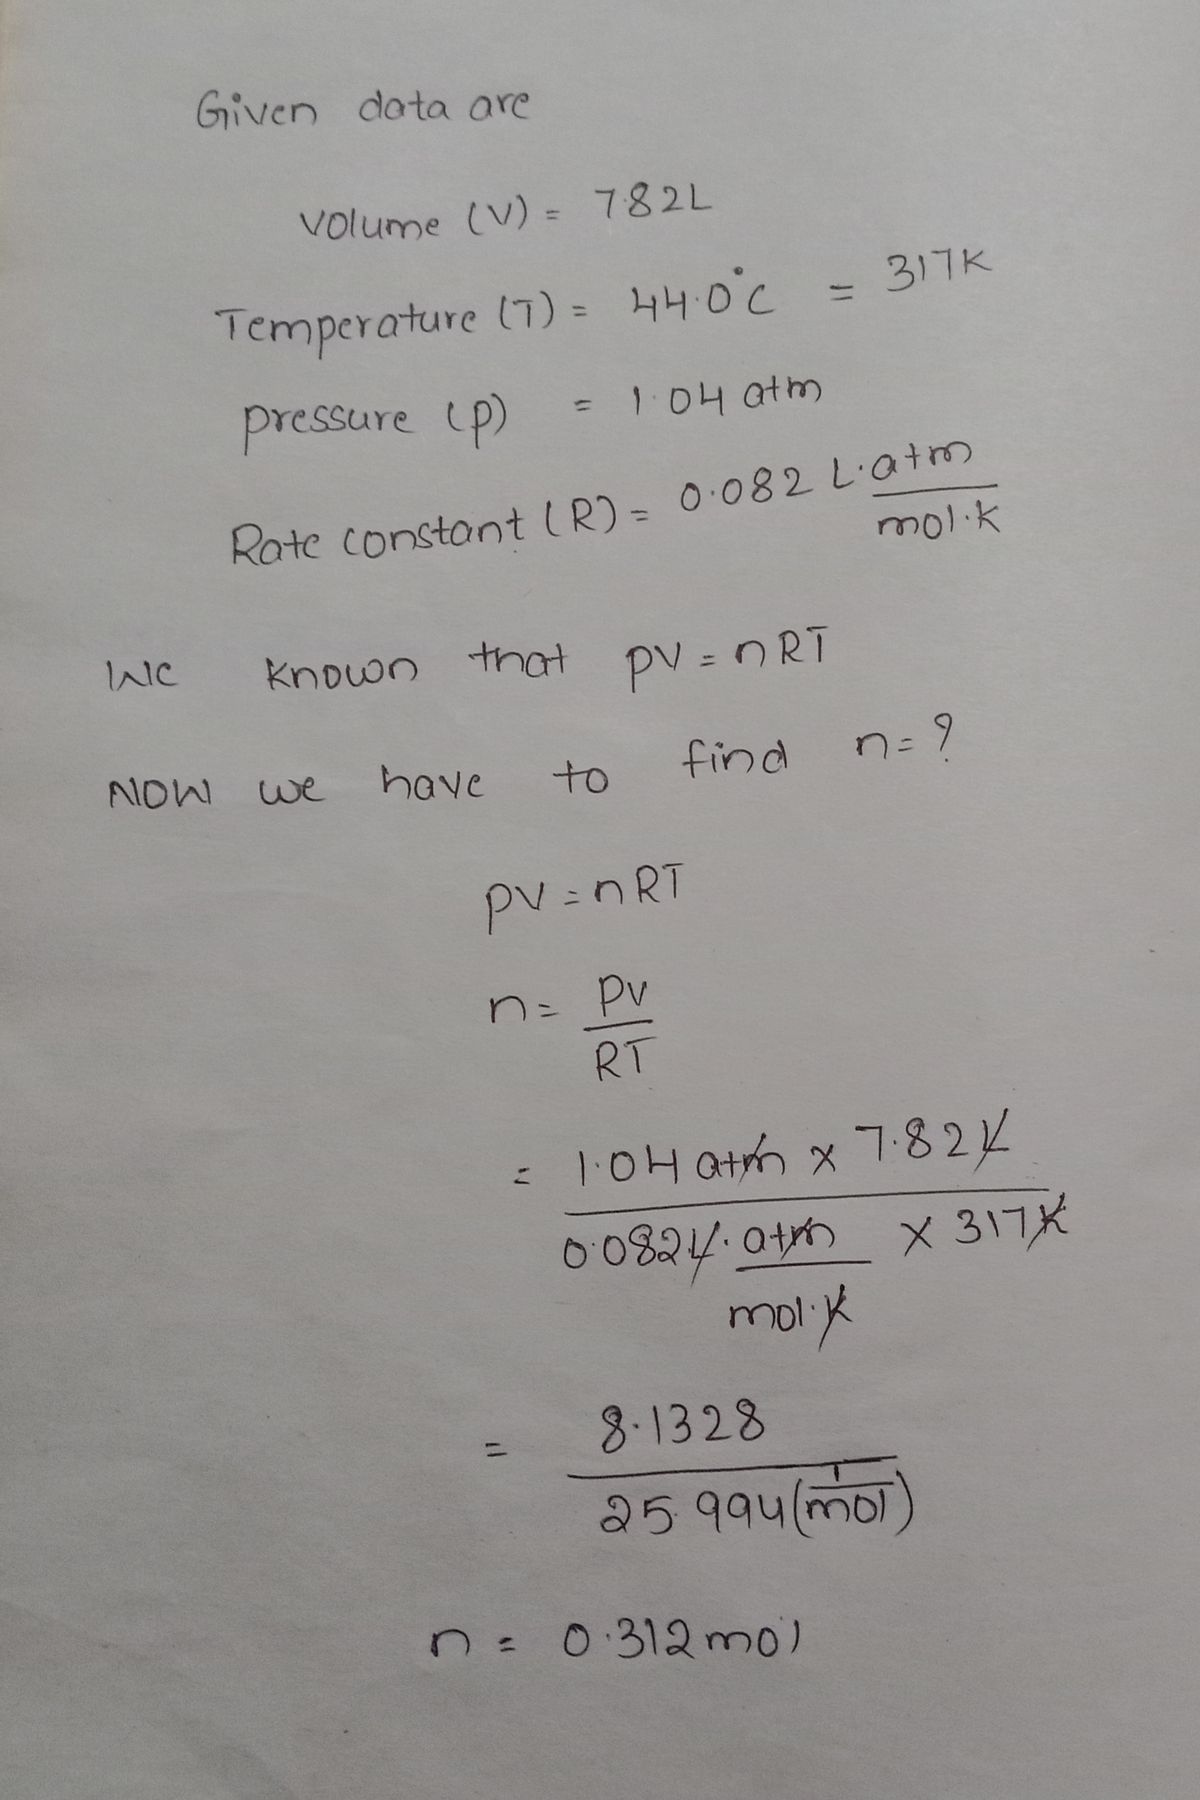 Given data are
Volume (V) = 7.82L
Temperature (T) = 44.0°C = 317K
pressure (p) = 1.04 atm
Rate constant (R) = 0.082 L.atm/mol.k
We known that pv = nRT
Now we have to find n=?
pv = nRT
n = PV/RT
= 1.04 atm x 7.82L
0.082L.atm/mol.K x 317K
= 8.1328
25.994(1/mol)
n = 0.312 mol